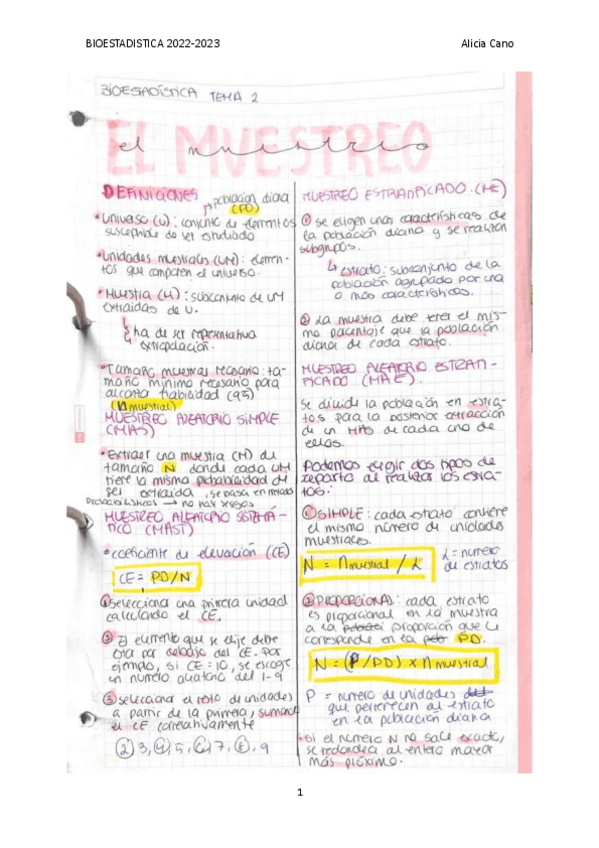 BIOESTADISTICA 2022-2023
Alicia Cano
BIOESTADÍSTICA TEMA 2
EL MUESTREO
el muestreo
DEFINICIONES
población diana
(PD)
• Universo (U): conjunto de elementos
susceptible de ser estudiado
• Unidades muestrales (UM): elemen-
tos que componen el universo.
• Muestra (M): subconjunto de UM
extraidas de U.
ha de ser representativa
extrapolación.
• Tamaño muestral necesario: ta-
maño mínimo necesario para
alcanza fiabilidad (95)
(n muestral)
MUESTREO ALEATORIO SIMPLE
(MAS)
• Extraer una muestra (M) de
tamaño N donde cada UM
tiene la misma probabilidad de
ser extraida, se basa en métodos
probabilísticos → no hay sesgos
MUESTREO ALEATORIO SISTEMÁ-
TICO (MAST)
• coeficiente de elevación (CE)
CE = PD/N
① Selecciona una primera unidad
calculando el CE.
② El elemento que se elije debe
estar por debajo del CE. Por
ejemplo, si CE = 10, se escoge
un número aleatorio del 1-9
③ seleccionar el resto de unidades
a partir de la primera, sumando
el CE correlativamente
2, 3, 4, 5, 6, 7, 8, 9
MUESTREO ESTRATIFICADO. (ME)
① se eligen unas características de
la población diana y se realizan
subgrupos.
↳ estrato: subconjunto de la
población agrupado por una
o más características.
② La muestra debe tener el mis-
mo porcentaje que la población
diana de cada estrato.
MUESTREO ALEATORIO ESTRATI-
FICADO (MAE).
Se divide la población en estra-
tos para la posterior extracción
de un MAS de cada uno de
ellos.
Podemos elegir dos tipos de
reparto al realizar los estra-
tos:
① SIMPLE: cada estrato contiene
el mismo número de unidades
muestrales.
N = n muestral / L
L = número
de estratos
② PROPORCIONAL: cada estrato
es proporcional en la muestra
a la proporción que le
corresponde en la PD.
N = (P/PD) x n muestral
P = número de unidades
que pertenecen al estrato
en la población diana
• Si el número N no sale exacto,
se redondea al entero mayor
más próximo.
1